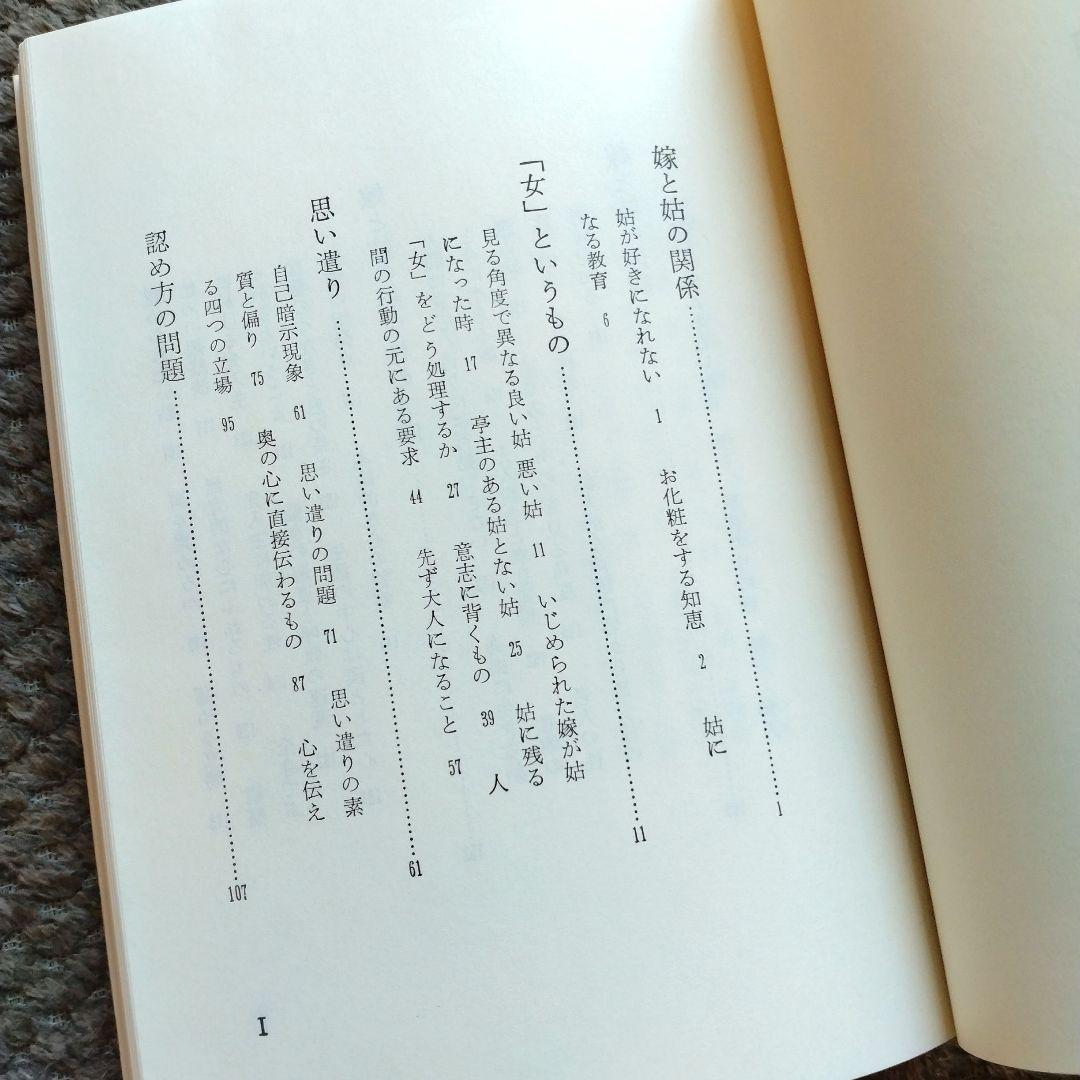 嫁と姑の関係……………………1
姑が好きになれない 1 お化粧をする知恵 2 姑に
なる教育 6
「女」というもの……………………11
見る角度で異なる良い姑 悪い姑 11 いじめられた嫁が姑
になった時 17 亭主のある姑とない姑 25 姑に残る
「女」をどう処理するか 27 意志に背くもの 39 人
間の行動の元にある要求 44 先ず大人になること 57
思い遣り……………………61
自己暗示現象 61 思い遣りの問題 71 思い遣りの素
質と偏り 75 奥の心に直接伝わるもの 87 心を伝え
る四つの立場 95
認め方の問題……………………107
I